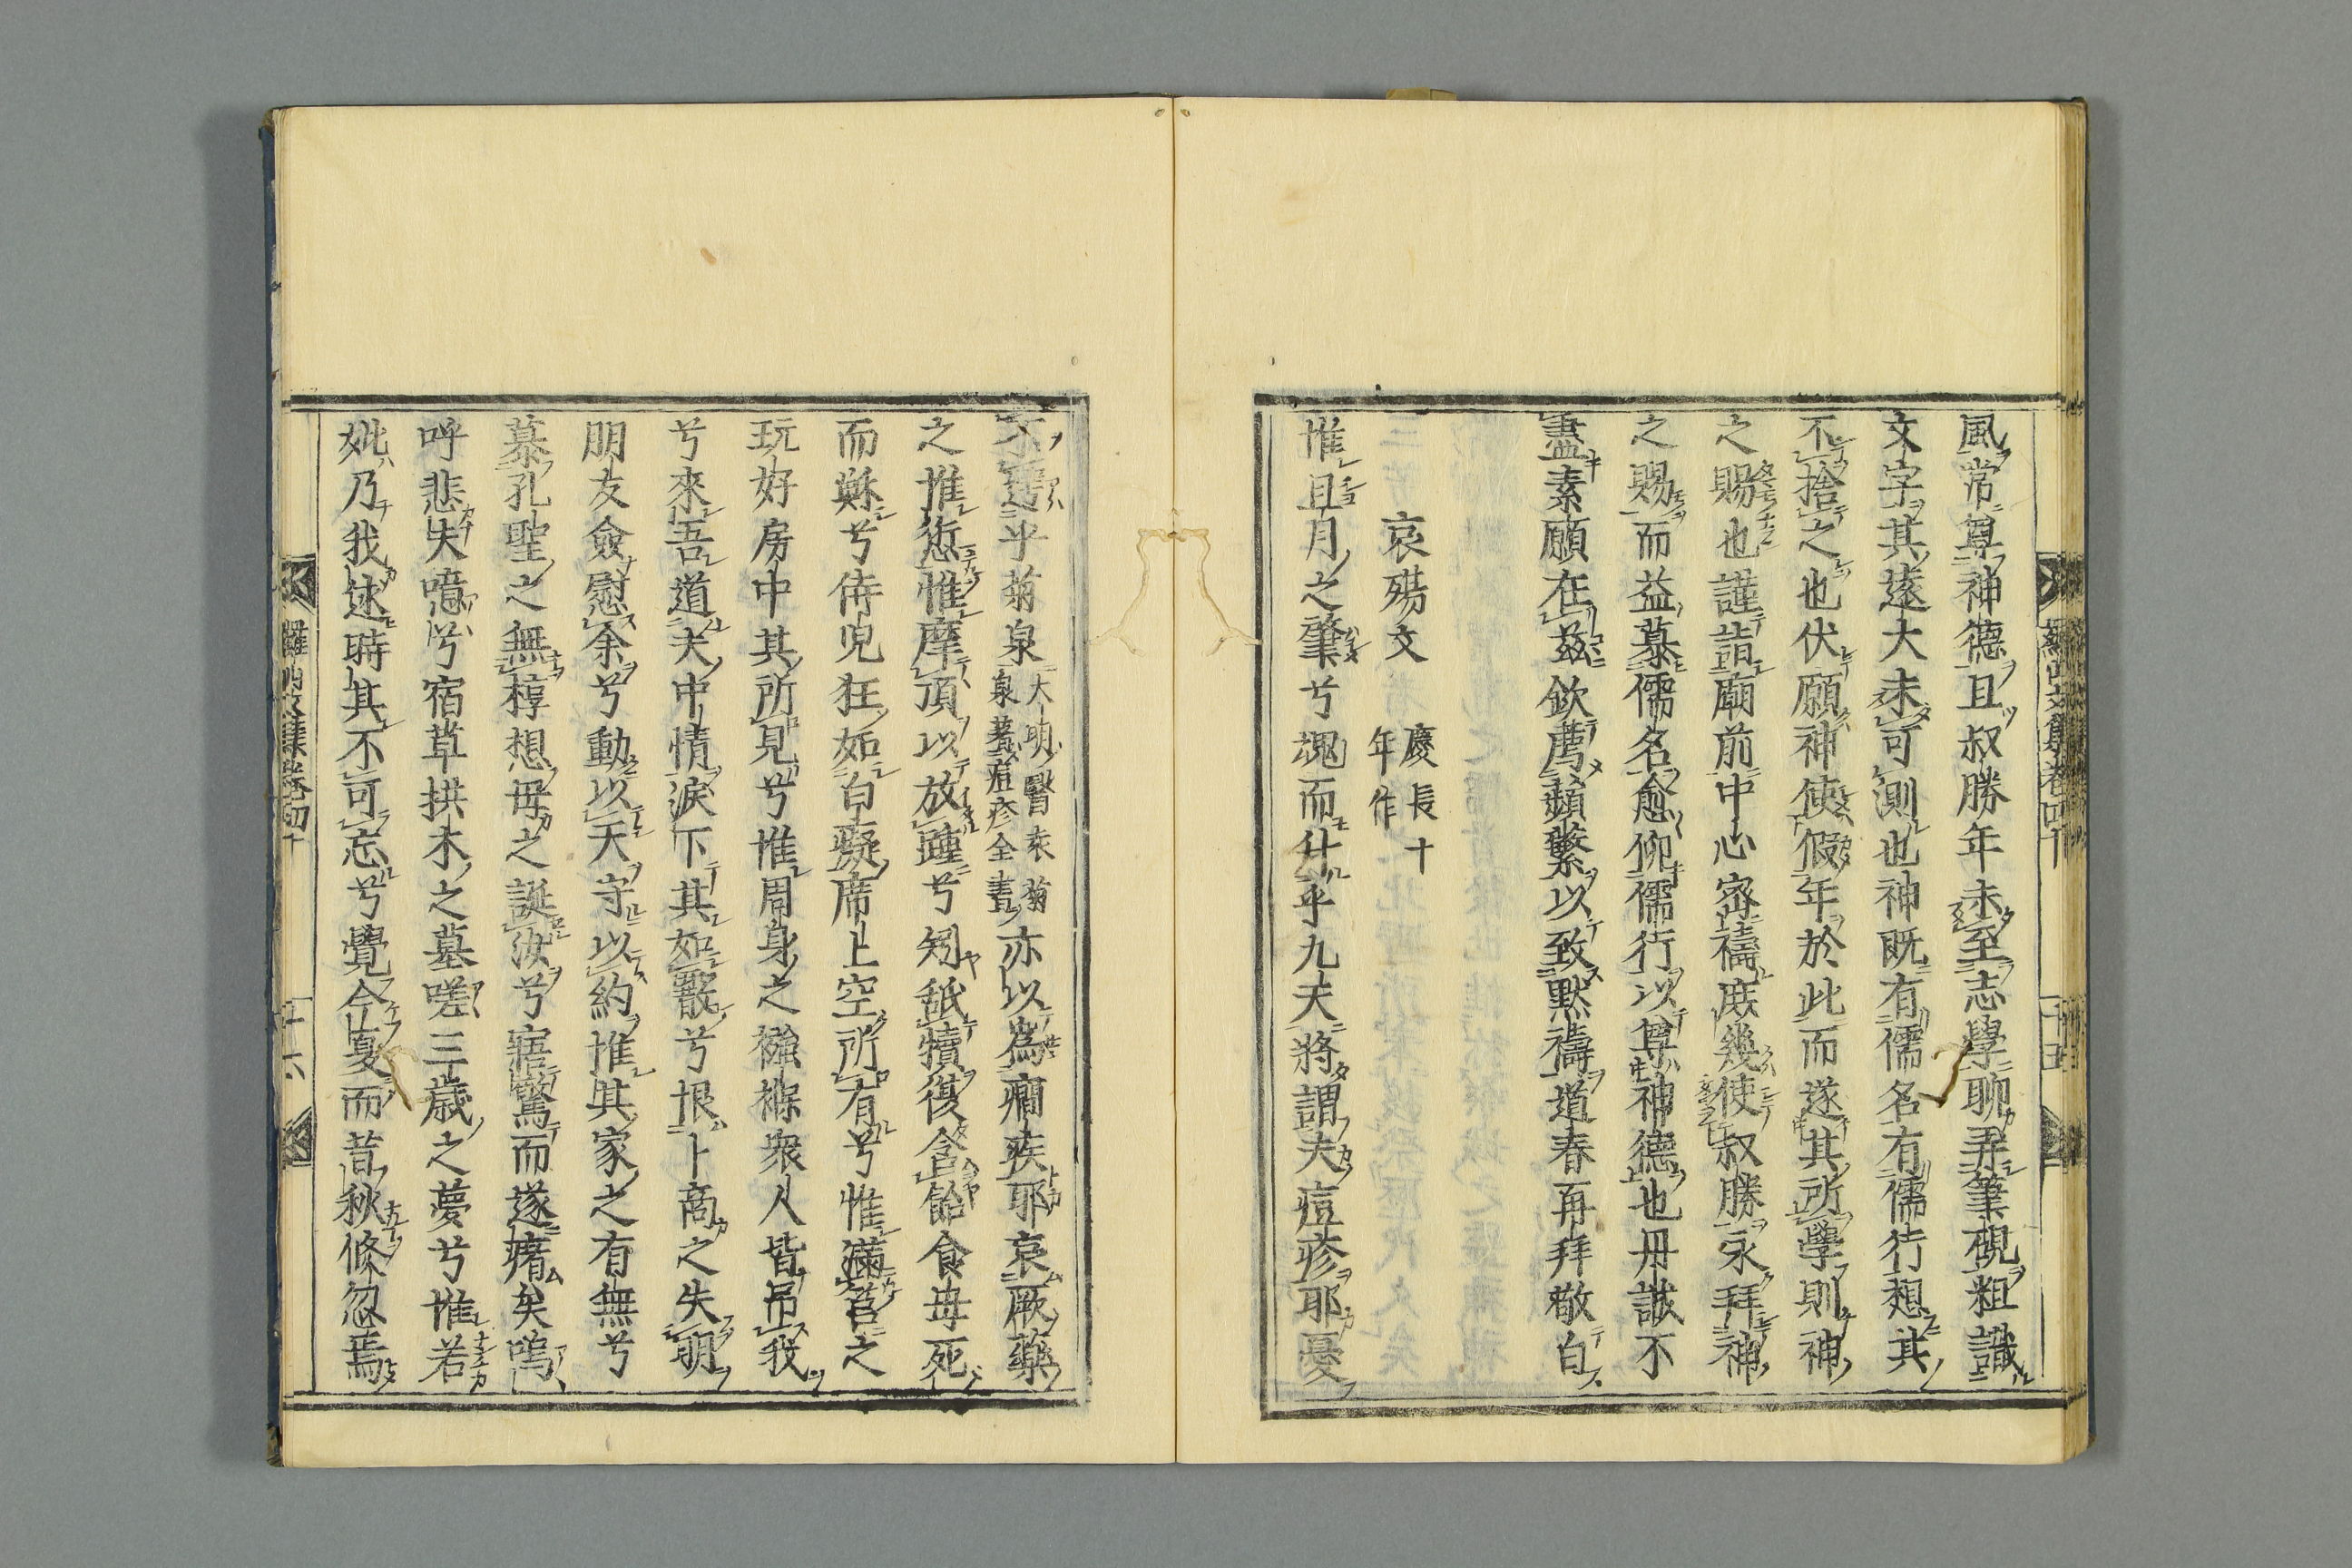 風常尊神德且叔勝年未至志學聊弄筆硯粗識
文字其遠大未可測也神既有儒名有儒行想其
不捨之也伏願神使假年於此而遂其所學則神
之賜也謹詣廟前中心密禱庶幾使叔勝永拜神
之賜而益慕儒名愈仰儒行以尊神德也丹誠不
盡素願在茲欽薦蘋蘩以致默禱道春再拜敬白
哀殤文
慶長十
年作
惟且月之肇兮魂而什乎九天將謂夫痘疹耶憂
乎菊泉
大明醫袁菊
泉著痘疹全書
亦以為痼疾耶哀厥藥
之惟愆惟摩頂以放踵兮矧舐犢復含飴食毋死
而穌兮侍兒狂如白癡席上空所有兮惟滿苔之
玩好房中其所見兮惟周身之襁褓衆人皆吊我
兮來吾道夫中情淚下其如霰兮恨卜商之失明
朋友僉慰余兮動以天守以約惟其家之有無兮
慕孔聖之無椁想毋之誕汝兮寤驚而遂瘏矣嗚
呼悲失噫兮宿草拱木之墓嗟三歲之夢兮惟若
妣乃我逑時其不可忘兮覺今夏而昔秋倏忽焉
羅山文集卷四十
十五
羅山文集卷四十
十六